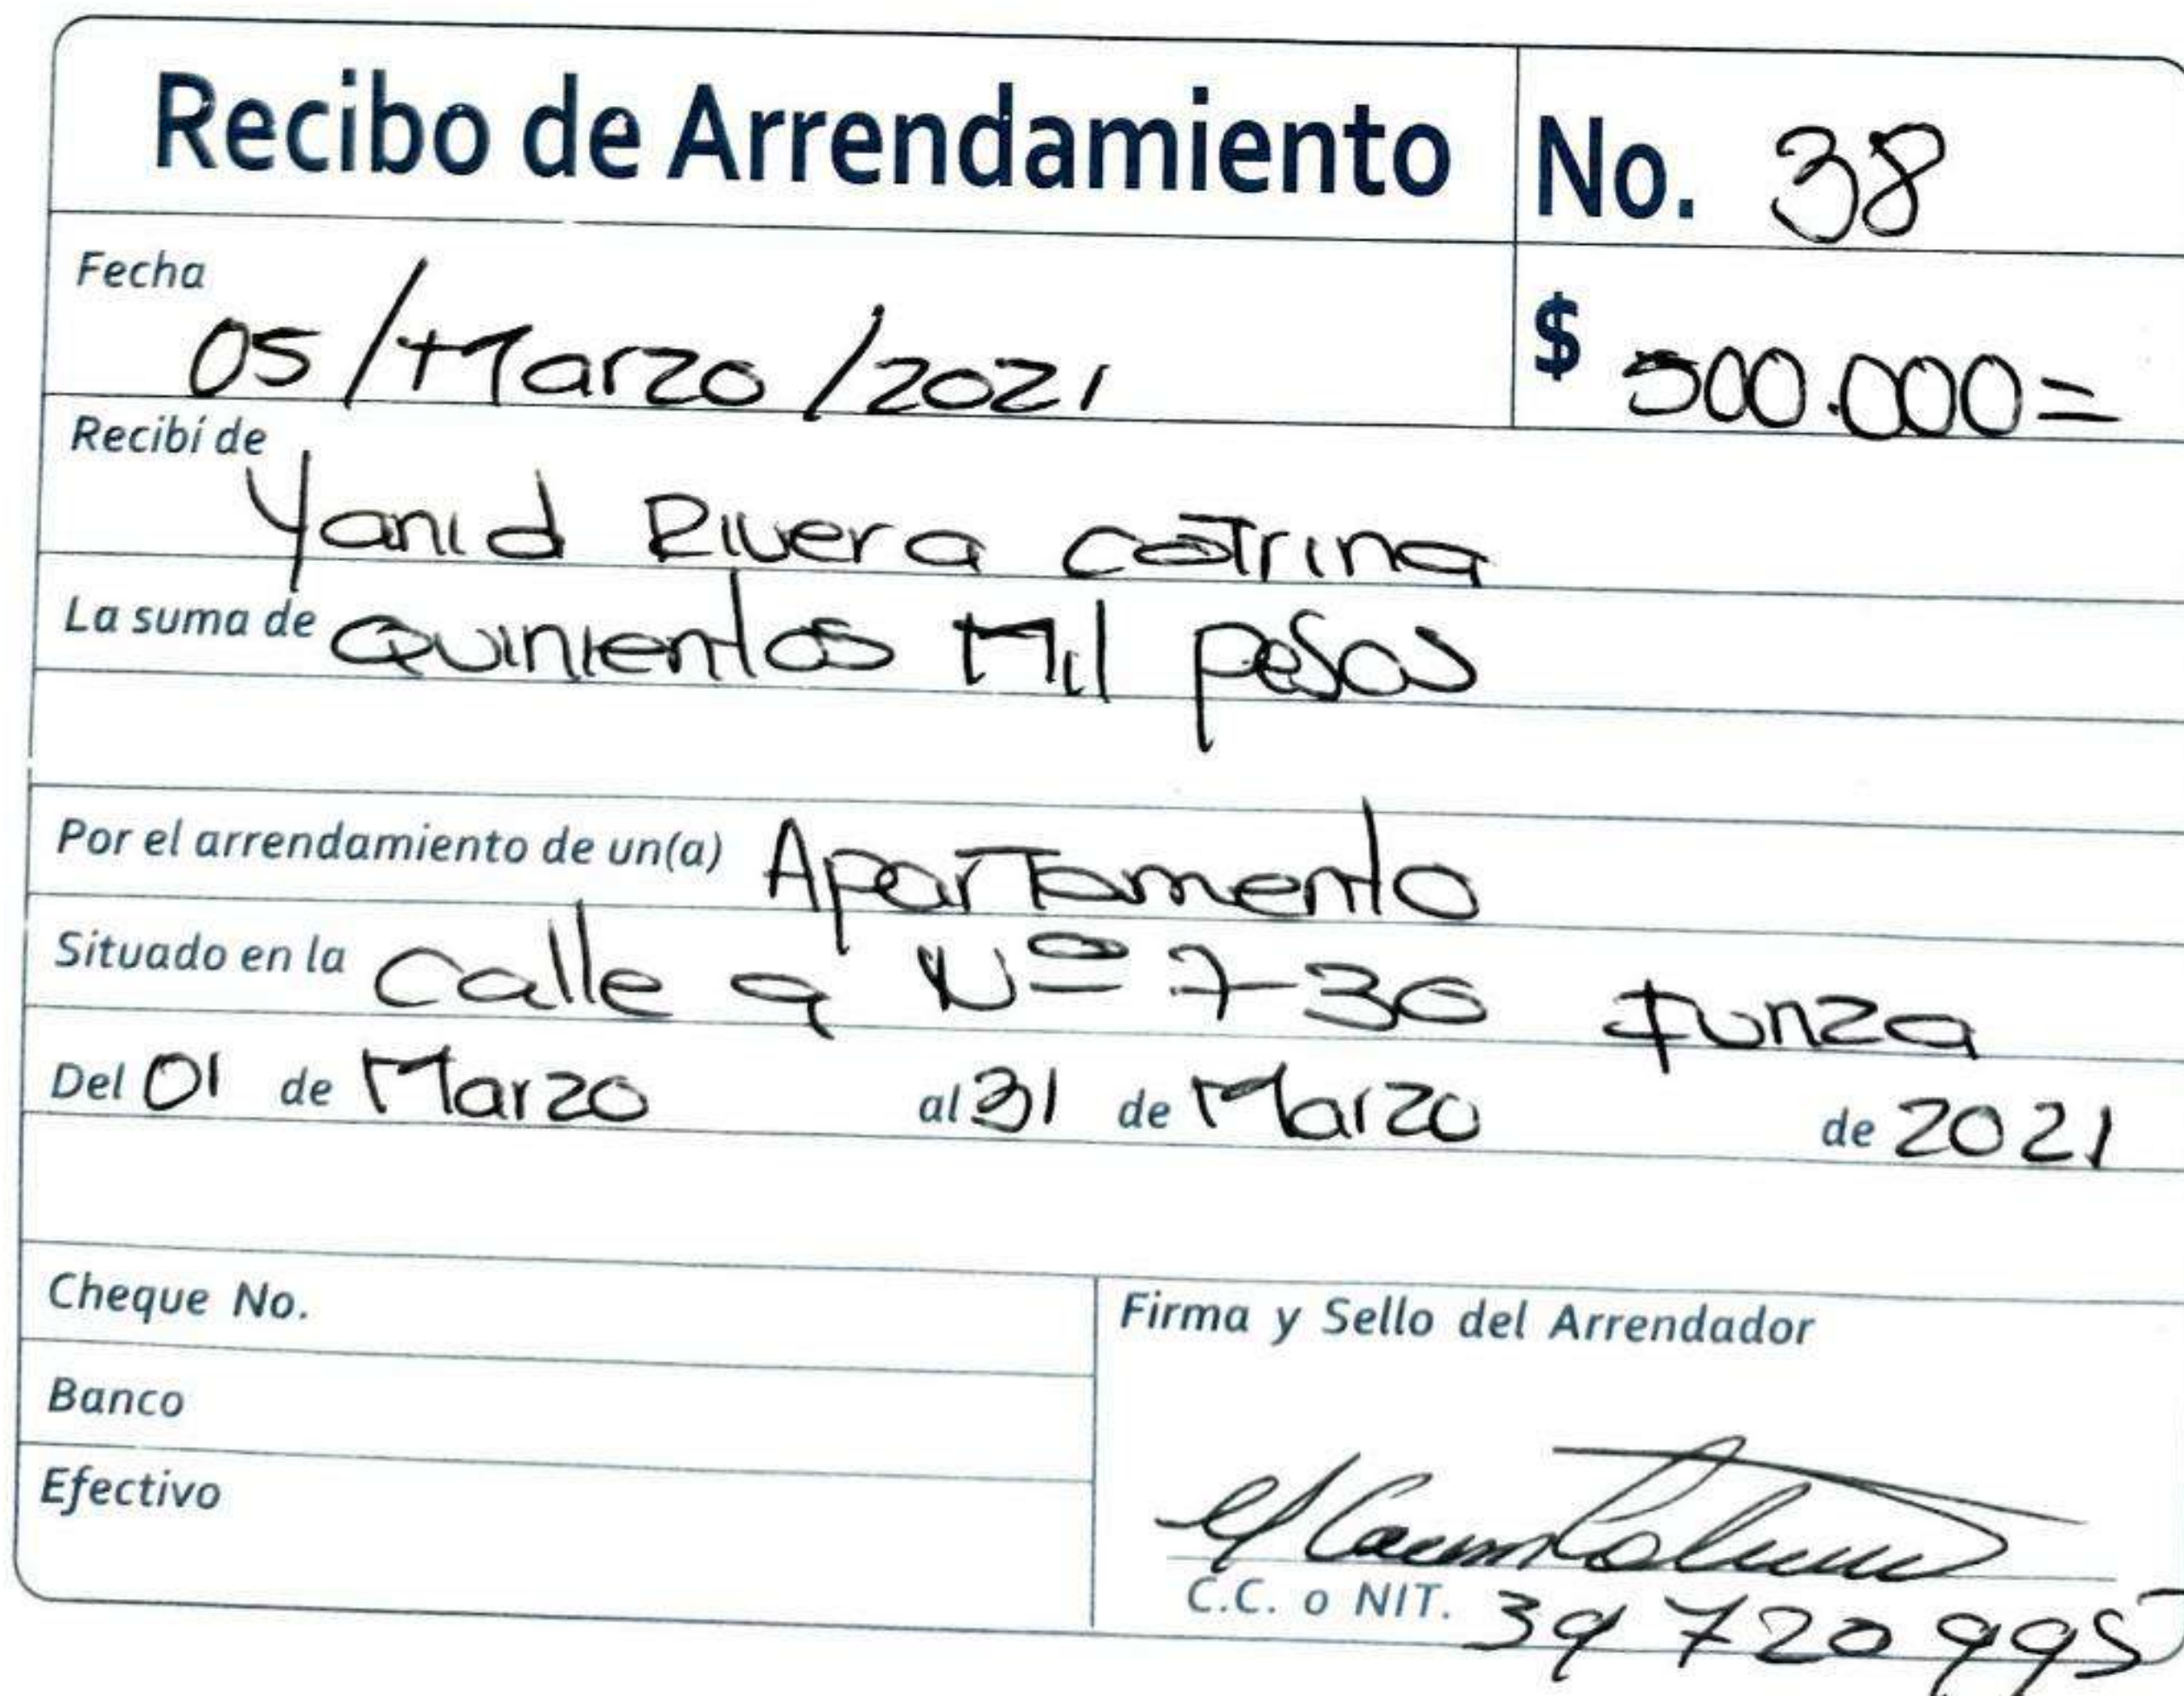 Recibo de Arrendamiento No. 38
Fecha 05/Marzo/2021 $ 500.000=
Recibí de Yanid Rivera Cotrina
La suma de Quinientos Mil pesos
Por el arrendamiento de un(a) Apartamento
Situado en la Calle 9 Nº 7-30 Funza
Del 01 de Marzo al 31 de Marzo de 2021
Cheque No.
Firma y Sello del Arrendador
Banco
Efectivo
C.C. o NIT. 39720995